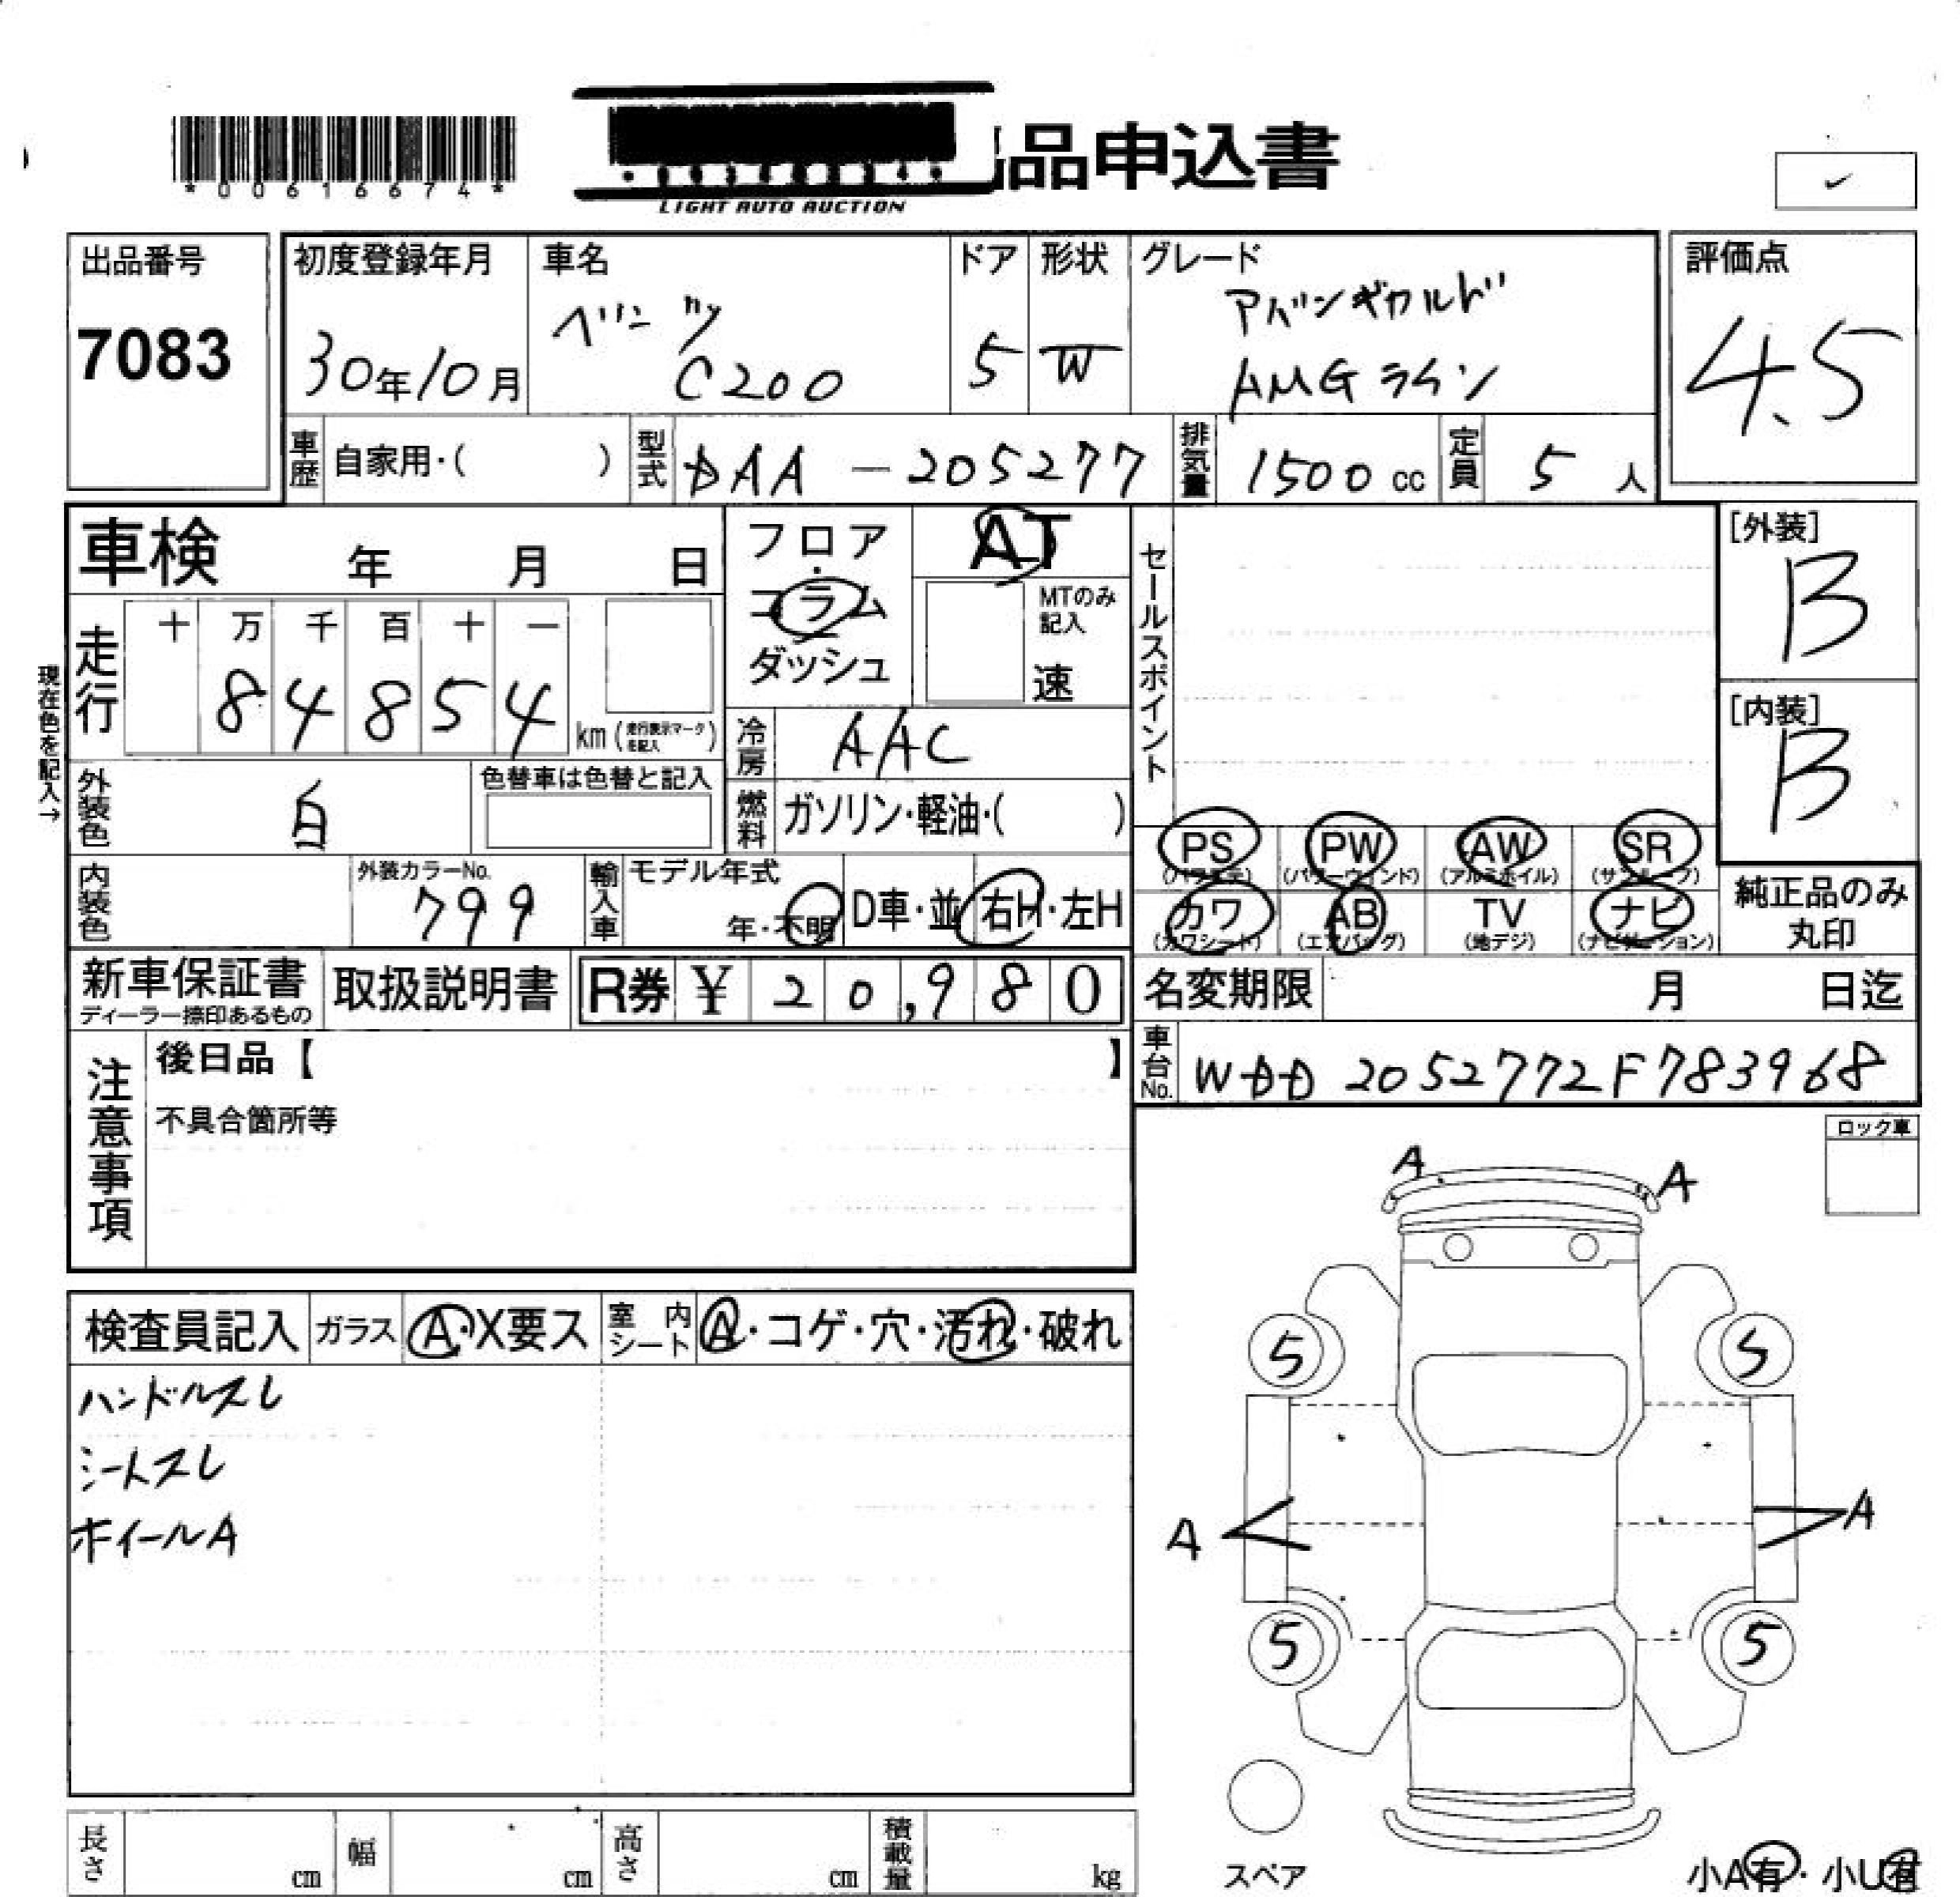 *00616674*
LIGHT AUTO AUCTION
品申込書
✓
出品番号
7083
初度登録年月
30年10月
車名
ベンツ
C200
ドア
5
形状
W
グレード
アバンギャルド
AMGライン
評価点
4.5
車歴
自家用・( )
型式
DAA-205277
排気量
1500cc
定員
5人
車検 年 月 日
フロア・コラム
ダッシュ
AT
MTのみ
記入
速
セールスポイント
[外装]
B
[内装]
B
現在色を記入→
走行
十 万 千 百 十 一
8 4 8 5 4
km (走行表示マークを記入)
冷房
AAC
外装色
白
色替車は色替と記入
燃料
ガソリン・軽油・( )
PS
(パワステ)
PW
(パワーウィンド)
AW
(アルミホイル)
SR
(サンルーフ)
内装色
外装カラーNo.
799
輸入車
モデル年式
年・不明
D車・並
右H・左H
カワ
(カワシート)
AB
(エアバッグ)
TV
(地デジ)
ナビ
(ナビゲーション)
純正品のみ
丸印
新車保証書
ディーラー捺印あるもの
取扱説明書
R券 ¥ 20,980
名変期限 月 日迄
車台No.
WDD2052772F783968
注意事項
後日品【 】
不具合箇所等
ロック車
A A
検査員記入
ガラス
A・X要ス
室内シート
A・コゲ・穴・汚れ・破れ
ハンドルスレ
シートスレ
ホイールA
5 5
A A
5 5
スペア
小A有・小U有
長さ cm
幅 cm
高さ cm
積載量 kg